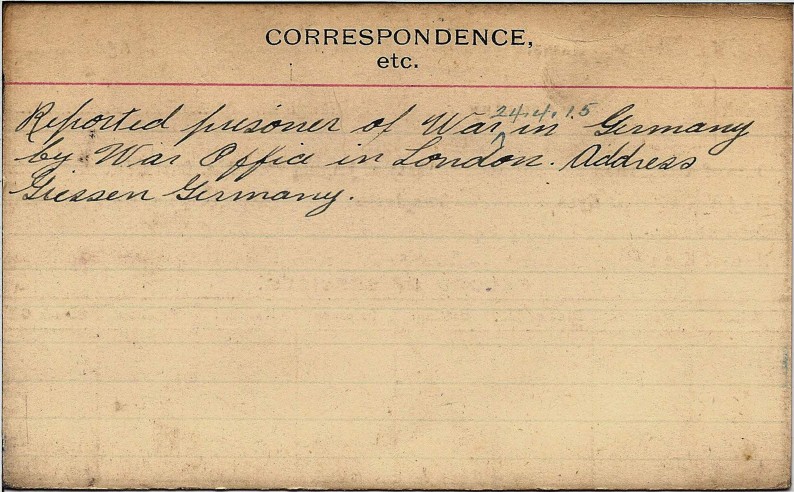 CORRESPONDENCE,
etc.
24.4.15
Reported prisoner of War in Germany
by War Office in London. Address
Giessen Germany.